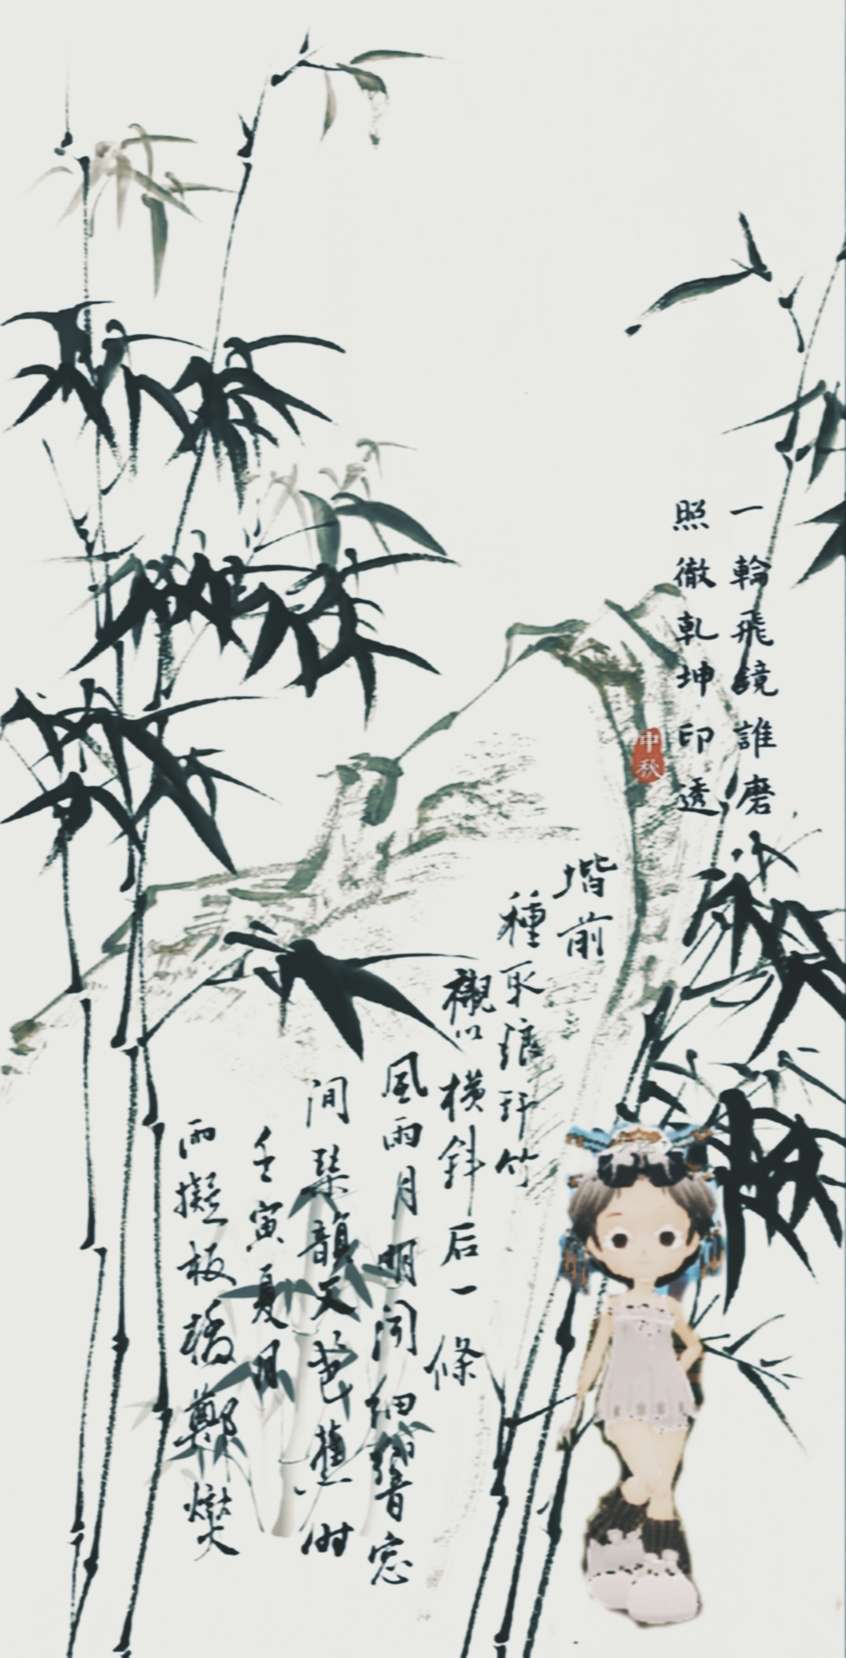 一輪飛鏡誰磨
照徹乾坤印透
中秋
堦前
種取琅玕竹
襯以橫斜后一條
風雨月明闻細響窓
间琴韻天芭蕉时
壬寅夏月
雨擬板橋鄭燮